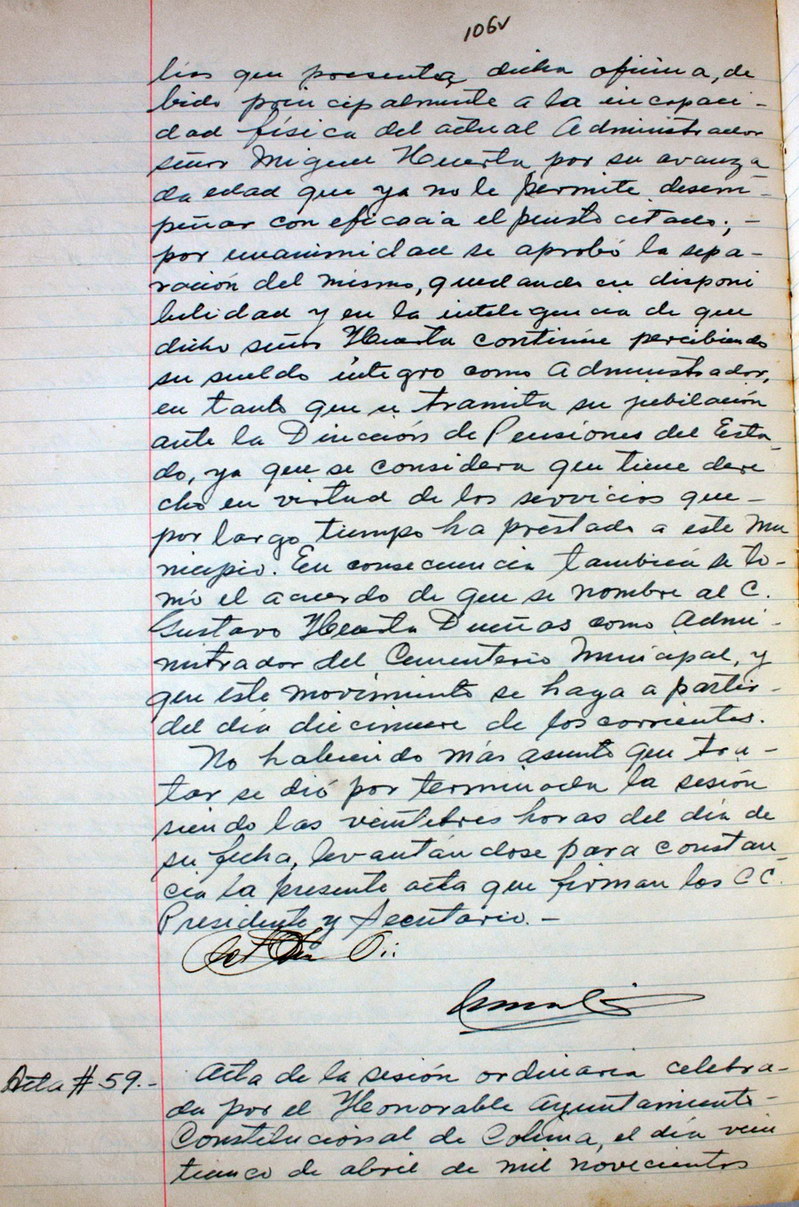 106v
lías que presenta dicha oficina, de
bido principalmente a la incapaci-
dad física del actual Administrador
señor Miguel Huerta por su avanza
da edad que ya no le permite desem-
peñar con eficacia el puesto citado; -
por unanimidad se aprobó la sepa-
ración del mismo, quedando en disponi
bilidad y en la inteligencia de que
dicho señor Huerta continúe percibiendo
su sueldo íntegro como Administrador,
en tanto que se tramita su jubilación
ante la Dirección de Pensiones del Esta-
do, ya que se considera que tiene dere
cho en virtud de los servicios que-
por largo tiempo ha prestado a este Mu
nicipio. En consecuencia también se to-
mó el acuerdo de que se nombre al C.
Gustavo Huerta Dueñas como Admi-
nistrador del Cementerio Municipal, y
que este movimiento se haga a partir-
del día diecinueve de los corrientes.
No habiendo más asunto que tra-
tar se dió por terminada la sesión
siendo las veintitres horas del día de
su fecha, levantándose para constan
cia la presente acta que firman los CC.
Presidente y Secretario.-
Acta # 59.- Acta de la sesión ordinaria celebra-
da por el Honorable Ayuntamiento-
Constitucional de Colima, el día vein
ticinco de abril de mil novecientos